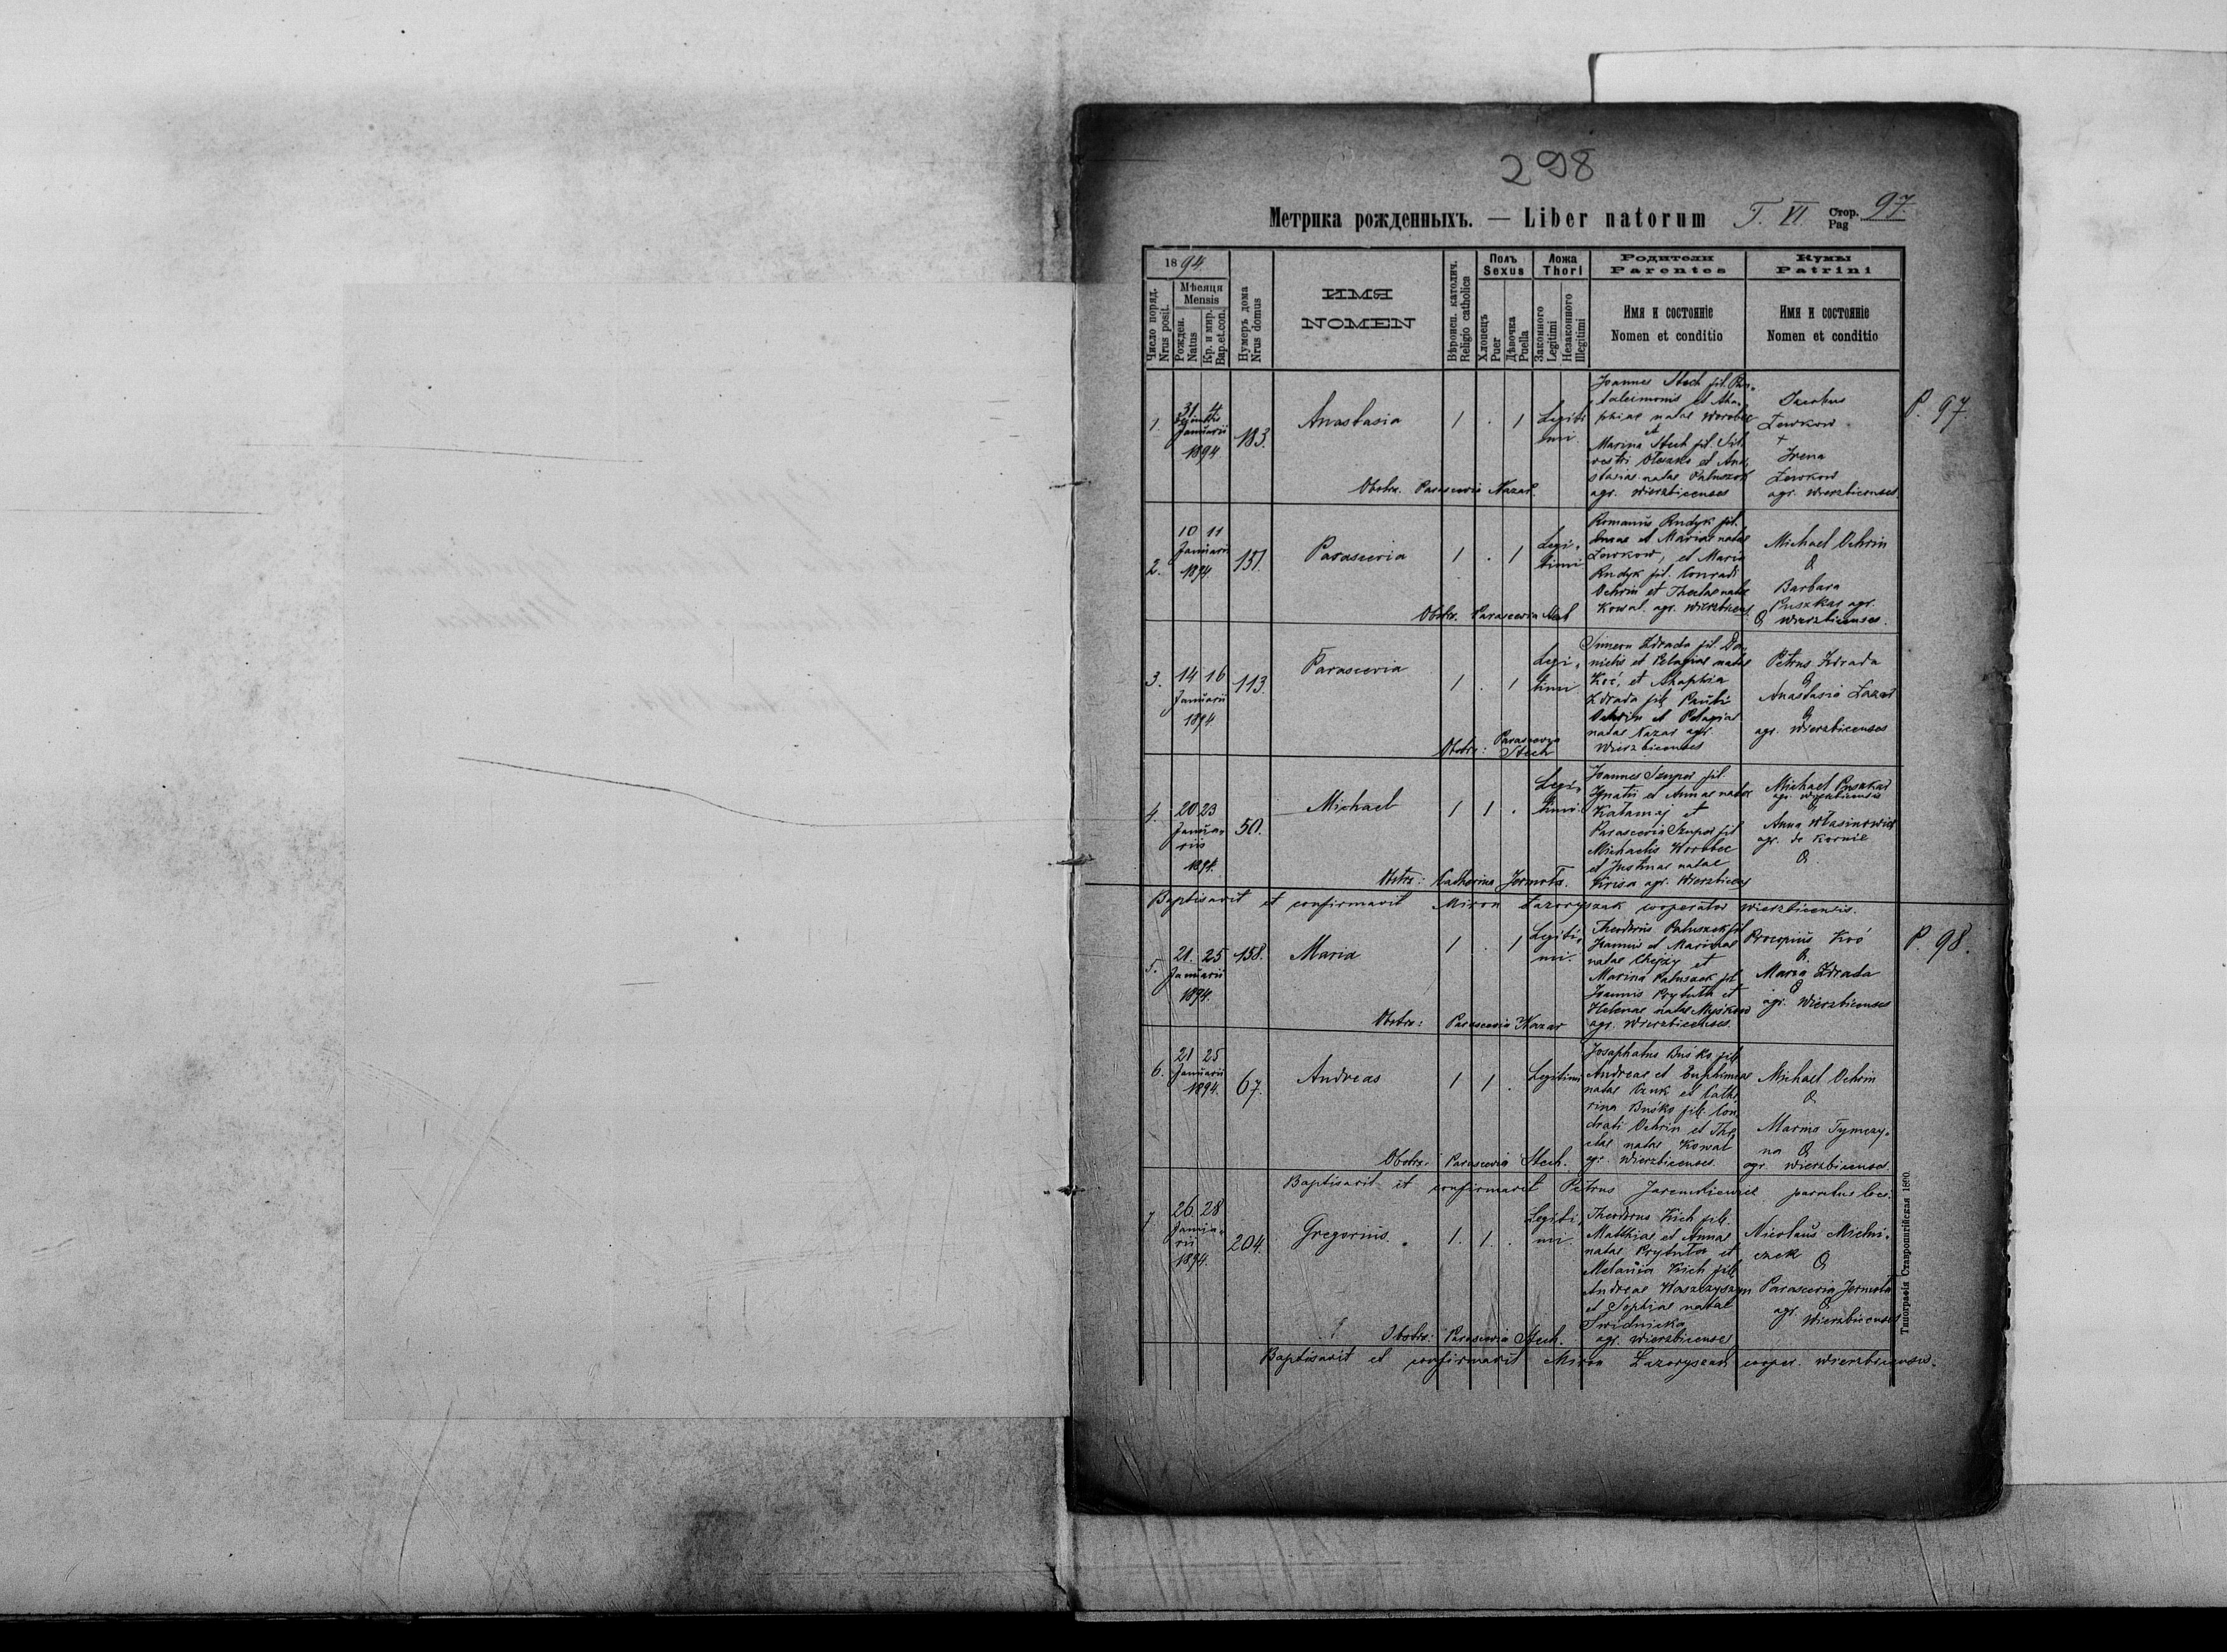 298
Метрика рожденныхъ. — Liber natorum T. VI. Стор. Pag 97.
1894
Число поряд. Nrus posit.
Мѣсяця Mensis
Рожден. Natus
Кр. и мир. Bap.et.con.
Нумеръ дома Nrus domus
ИМЯ
NOMEN
Вѣроисп. католич. Religio catholica
Полъ Sexus
Хлопецъ Puer
Дѣвочка Puella
Ложа Thori
Законного Legitimi
Незаконного Illegitimi
Родители
Parentes
Имя и состояніе
Nomen et conditio
Кумы
Patrini
Имя и состояніе
Nomen et conditio
1. 31 4 Januarii 1894 183. Anastasia 1 . 1 Legiti
mi
Joannes Stech fil. Pan,
taleimonis et Aha,
phiae natae Worobec
et
Marina Stech fil. Sil,
vestri Oleszko et Ana,
stasiae natae Patuszok
agr. Wierzbicenses
Jacobus
Lewkow
+
Irena
Lewkow
agr. Wierzbicenses.
P. 97.
Obstr. Parascevia Nazar.
2. 10 11 Januarii 1894. 151. Parascevia 1 . 1 Legi,
timi
Romanus Rudyk fil.
et Mariae natae
Lewkow, et Maria
Rudyk fil. Conradi
Ochrin et Theclae natae
Kowal. agr. Wierzbicens.
Michael Ochrin
&
Barbara
Puszkar agr.
& Wierzbicenses.
Obstr. Parascevia
3. 14 16 Januarii 1894. 113. Parascevia 1 . 1 Legi,
timi
Simeon Zdrada fil. Da,
nielis et Pelagiae natae
Koć, et Ahaphia
Zdrada fil. Pauli
Ochrin et Pelagiae
natae Nazar agr.
Wierzbicenses
Petrus Zdrada
&
Anastasia Lazar
&
agr. Wierzbicenses
Obstr: Parascevia
Stech
4. 20 23 Janua,
rii
1894. 50. Michael 1 1 . Legi,
timi
Joannes Szupor fil.
Ignatii et Annae natae
Katamaj et
Parascevia Szupor fil
Michaelis Worobec
et Justinae natae
Kirisa agr. Wierzbicens
Michael Puszkar
agr. Wierzbicensis
&
Anna Wlasinowicz
agr. de Kornie
&.
Obstr: Catharina Jermota.
Baptisavit et confirmavit Miron Lazoryszak cooperator Wierzbicensis.
5. 21. 25 Januarii 1894. 158. Maria 1 . 1 Legiti,
mi.
Theodorus Patuszok fil
Joannis et Marinae
natae Chejzy et
Marina Patuszok fil
Joannis Prytuła et
Helenae natae Myśkow
agr. Wierzbicenses.
Procopius Koć
&
Maria Zdrada
&
agr. Wierzbicenses
P. 98.
Obstr: Parascevia Nazar
6. 21 25 Januarii 1894. 67. Andreas 1 1 . Legitimi
Josaphatus Buśko fil.
Andreae et Euphimiae
natae et Cathe
rina Buśko fil. Con
drati Ochrin et The,
clae natae Kowal
agr. Wierzbicenses.
Michael Ochrin
&
Marina Tymczy,
na &
agr. Wierzbicenses.
Obstr: Parascevia Stech.
Baptisavit et confirmavit Petrus Jaremkiewicz parochus loci.
7. 26. 28 Janua,
rii
1894. 204. Gregorius. 1. 1. . Legiti,
mi.
Theodorus Kich fil.
Matthiae et Annae
natae Prytuła et
Melania Kich fil.
Andreae Waszczyszyn
et Sophiae natae
Swidnicka
agr. Wierzbicenses
Nicolaus Michni,
czek &
Parascevia Jermota
&
agr. Wierzbicenses
Obstr: Parascevia Stech.
Baptisavit et confirmavit Miron Lazoryszak cooper. Wierzbicensis.
Типографія Ставропигійская 1890.